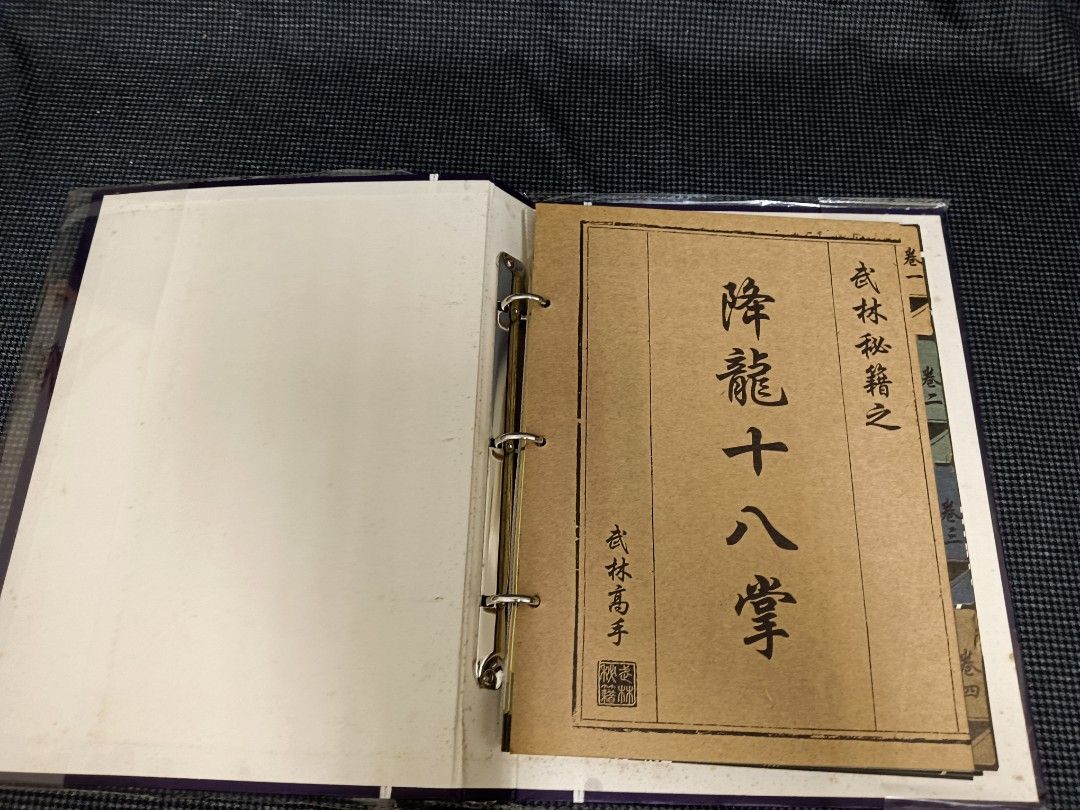 武林秘籍之
降龍十八掌
武林高手
武林
秘籍
卷一
卷二
卷三
卷四